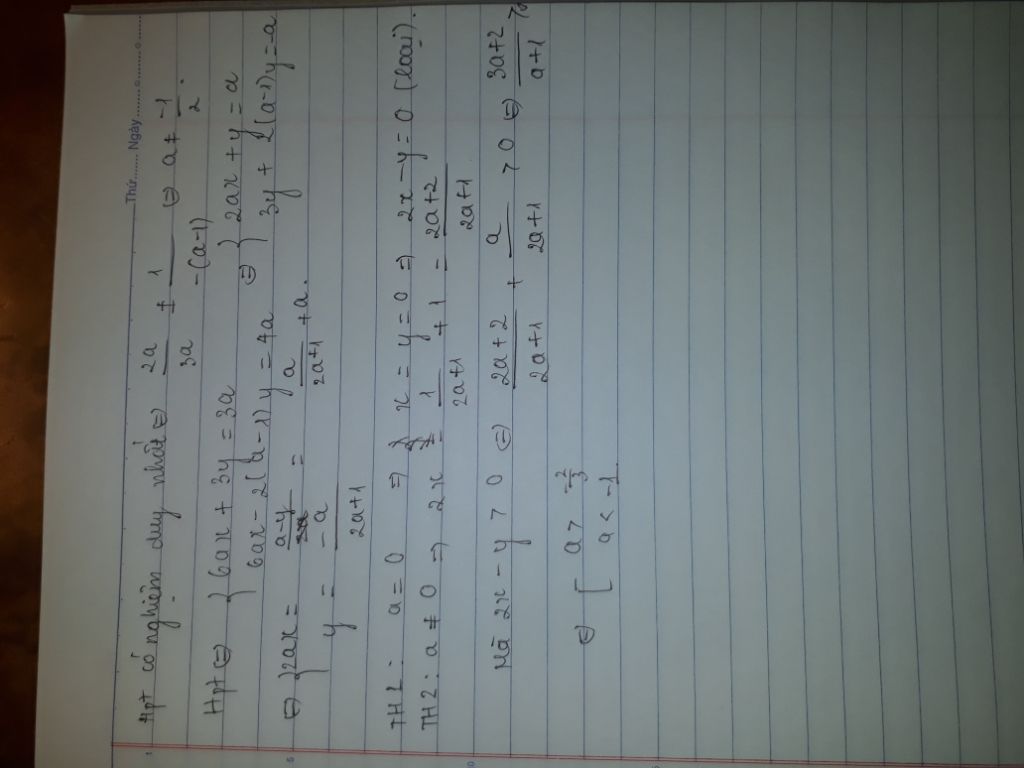 Thứ........ Ngày........
Hpt có nghiệm duy nhất ⇔ 2a/3a ≠ 1/-(a-1) ⇔ a ≠ -1/2.
Hpt ⇔ { 6ax + 3y = 3a
6ax - 2(a-1)y = 4a ⇔ { 2ax + y = a
3y + 2(a-1)y = a
⇔ { 2ax = a-y = a/2a+1 + a.
y = -a/2a+1
TH1: a = 0 ⇒ x = y = 0 ⇒ 2x - y = 0 (loại).
TH2: a ≠ 0 ⇒ 2x = 1/2a+1 + 1 = 2a+2/2a+1
Mà 2x - y > 0 ⇔ 2a+2/2a+1 + a/2a+1 > 0 ⇔ 3a+2/a+1 >
⇔ [ a > -2/3
a < -1